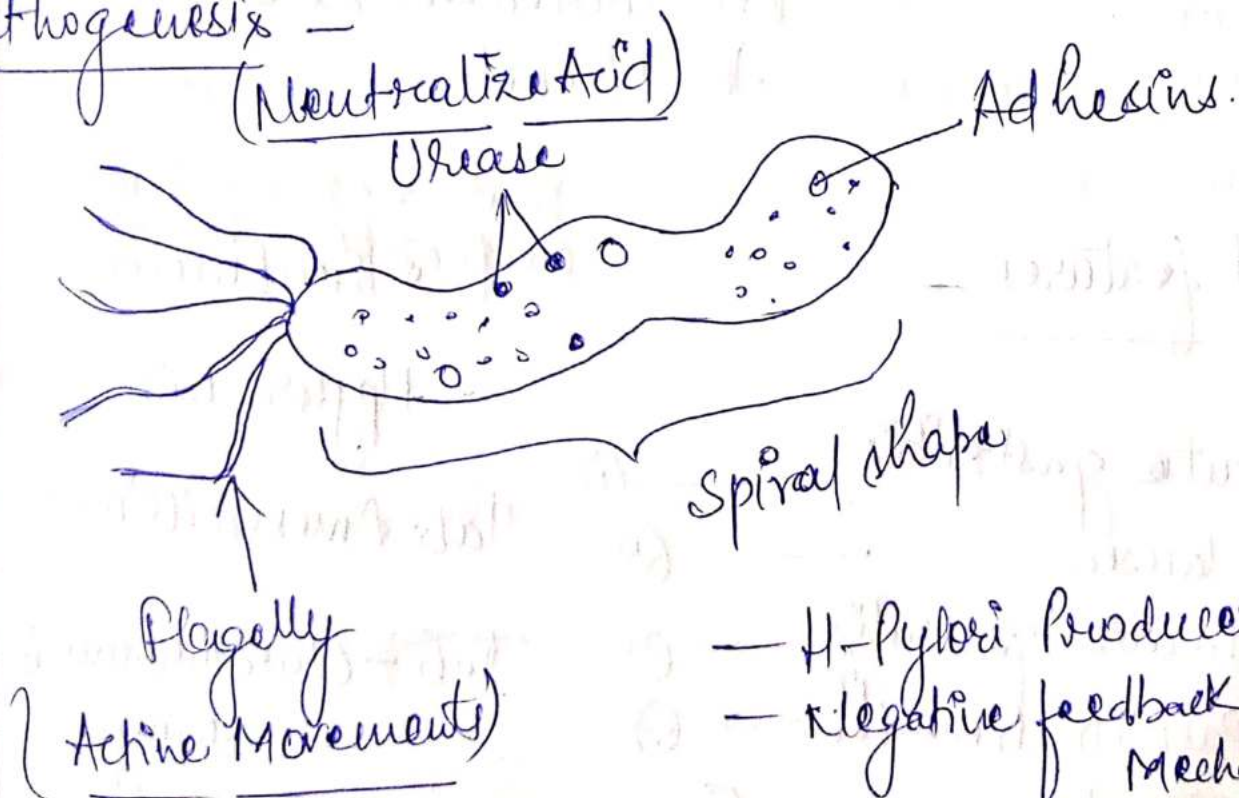 thogenesis –
(Neutralize Acid)
Urease
Adhesins.
Spiral shape
Flagelly
(Active Movements)
— H-Pylori Produce
— Negative feedback
Mech